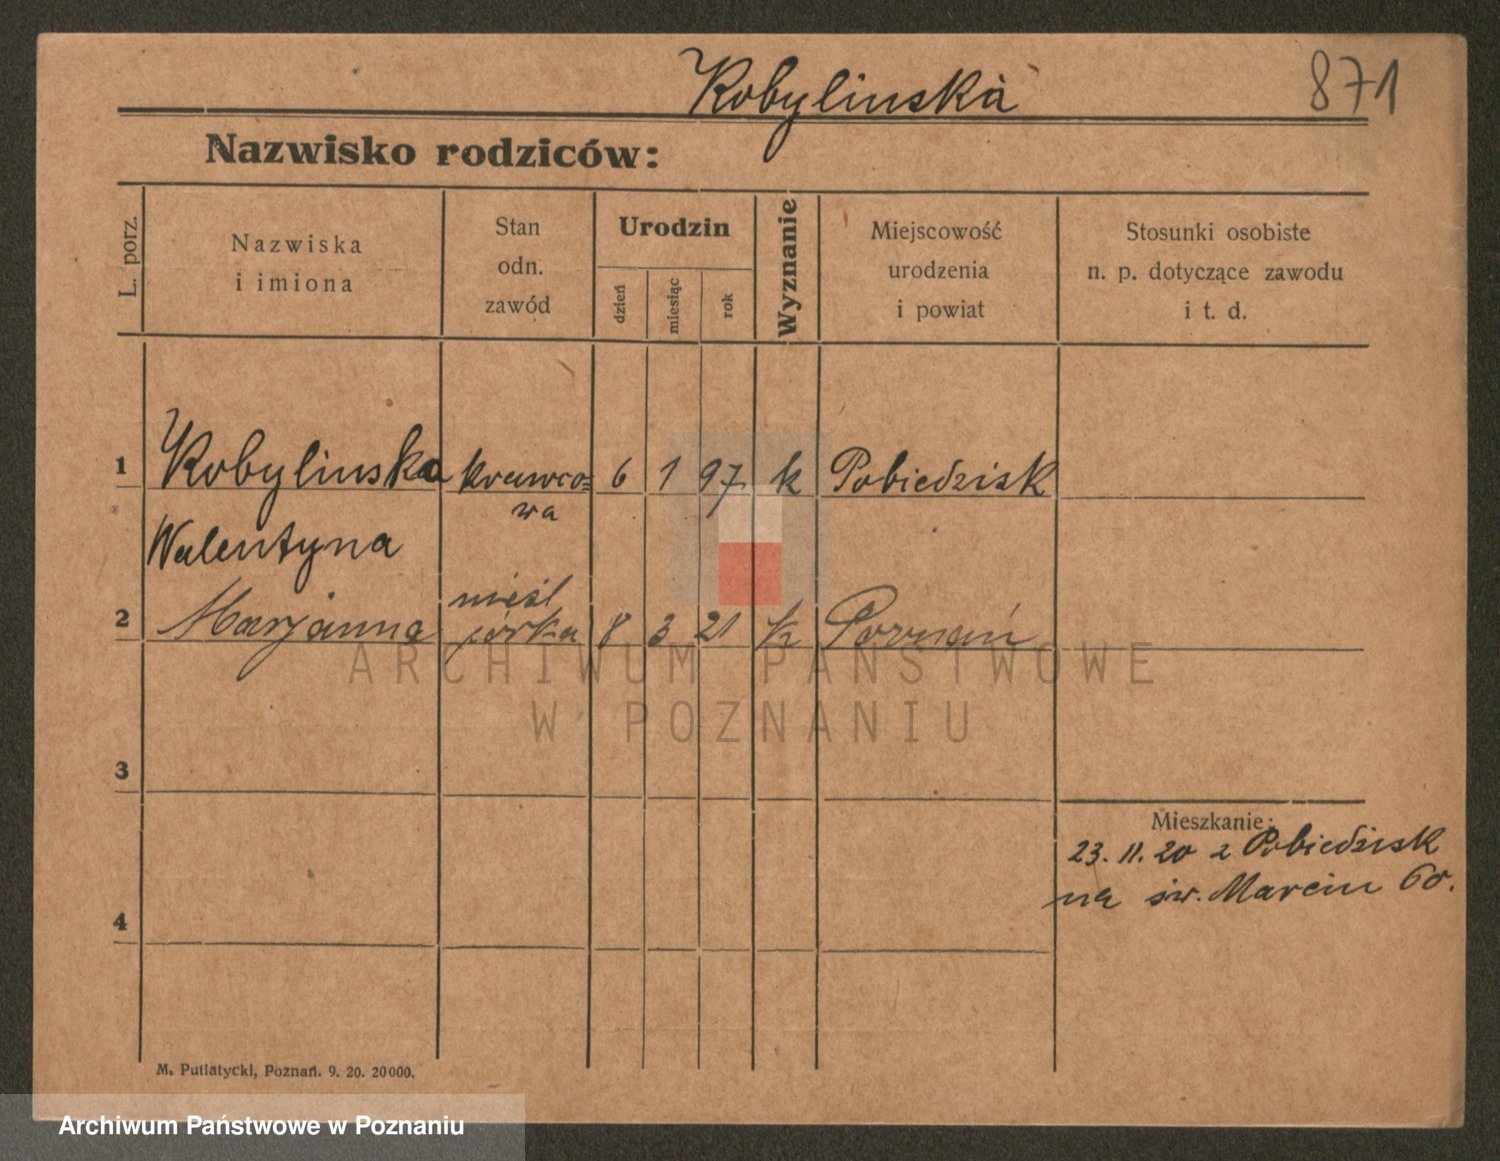 Kobylinska 871
Nazwisko rodziców:
L. porz.
Nazwiska
i imiona
Stan
odn.
zawód
Urodzin
dzień
miesiąc
rok
Wyznanie
Miejscowość
urodzenia
i powiat
Stosunki osobiste
n. p. dotyczące zawodu
i t. d.
1 Kobylinska krawco= 6 1 97 k Pobiedzisk
wa
Walentyna
nieśl
2 Marjanna córka 8 3 21 k Poznań
ARCHIWUM PAŃSTWOWE
W POZNANIU
3
Mieszkanie:
23. 11. 20 z Pobiedzisk
na św. Marcin 60.
4
M. Putiatycki, Poznań. 9. 20. 20000.
Archiwum Państwowe w Poznaniu